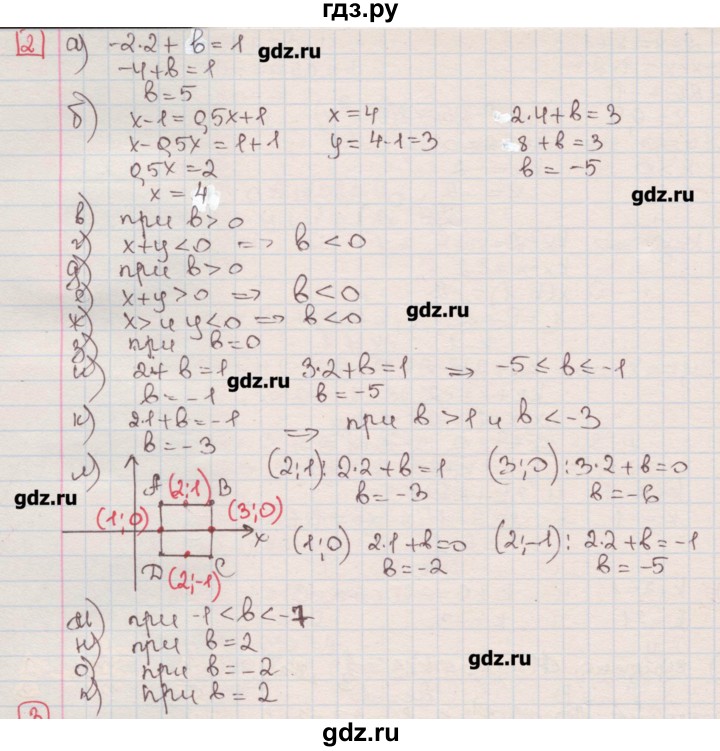 гдз.ру
2 а) -2·2 + в = 1
gdz.ru
-4+в=1
в=5
б) х-1=0,5х+1 х=4 2·4+в=3
х-0,5х=1+1 у=4-1=3 8+в=3
0,5х=2 в=-5
х=4
gdz.ru
в) при в>0
г) х+у<0 => в<0
д) при в>0
е) х+у>0 => в<0
gdz.ru
ж) х> и у<0 => в<0
з) при в=0
и) 2+ в=1 3·2+в=1 => -5≤в≤-1
gdz.ru
в=-1 в=-5
к) 2·1+в=-1 => при в>1 и в<-3
в=-3
л) (2;1): 2·2+в=1 (3;0): 3·2+в=0
в=-3 в=-6
А (2;1) В
gdz.ru
(1;0) (3;0)
х
(1;0) 2·1+в=0 (2;-1): 2·2+в=-1
в=-2 в=-5
D (2;-1) С
м) при -1<в<-7
н) при в=2
о) при в=-2
gdz.ru
п) при в=2
3
gdz.ru